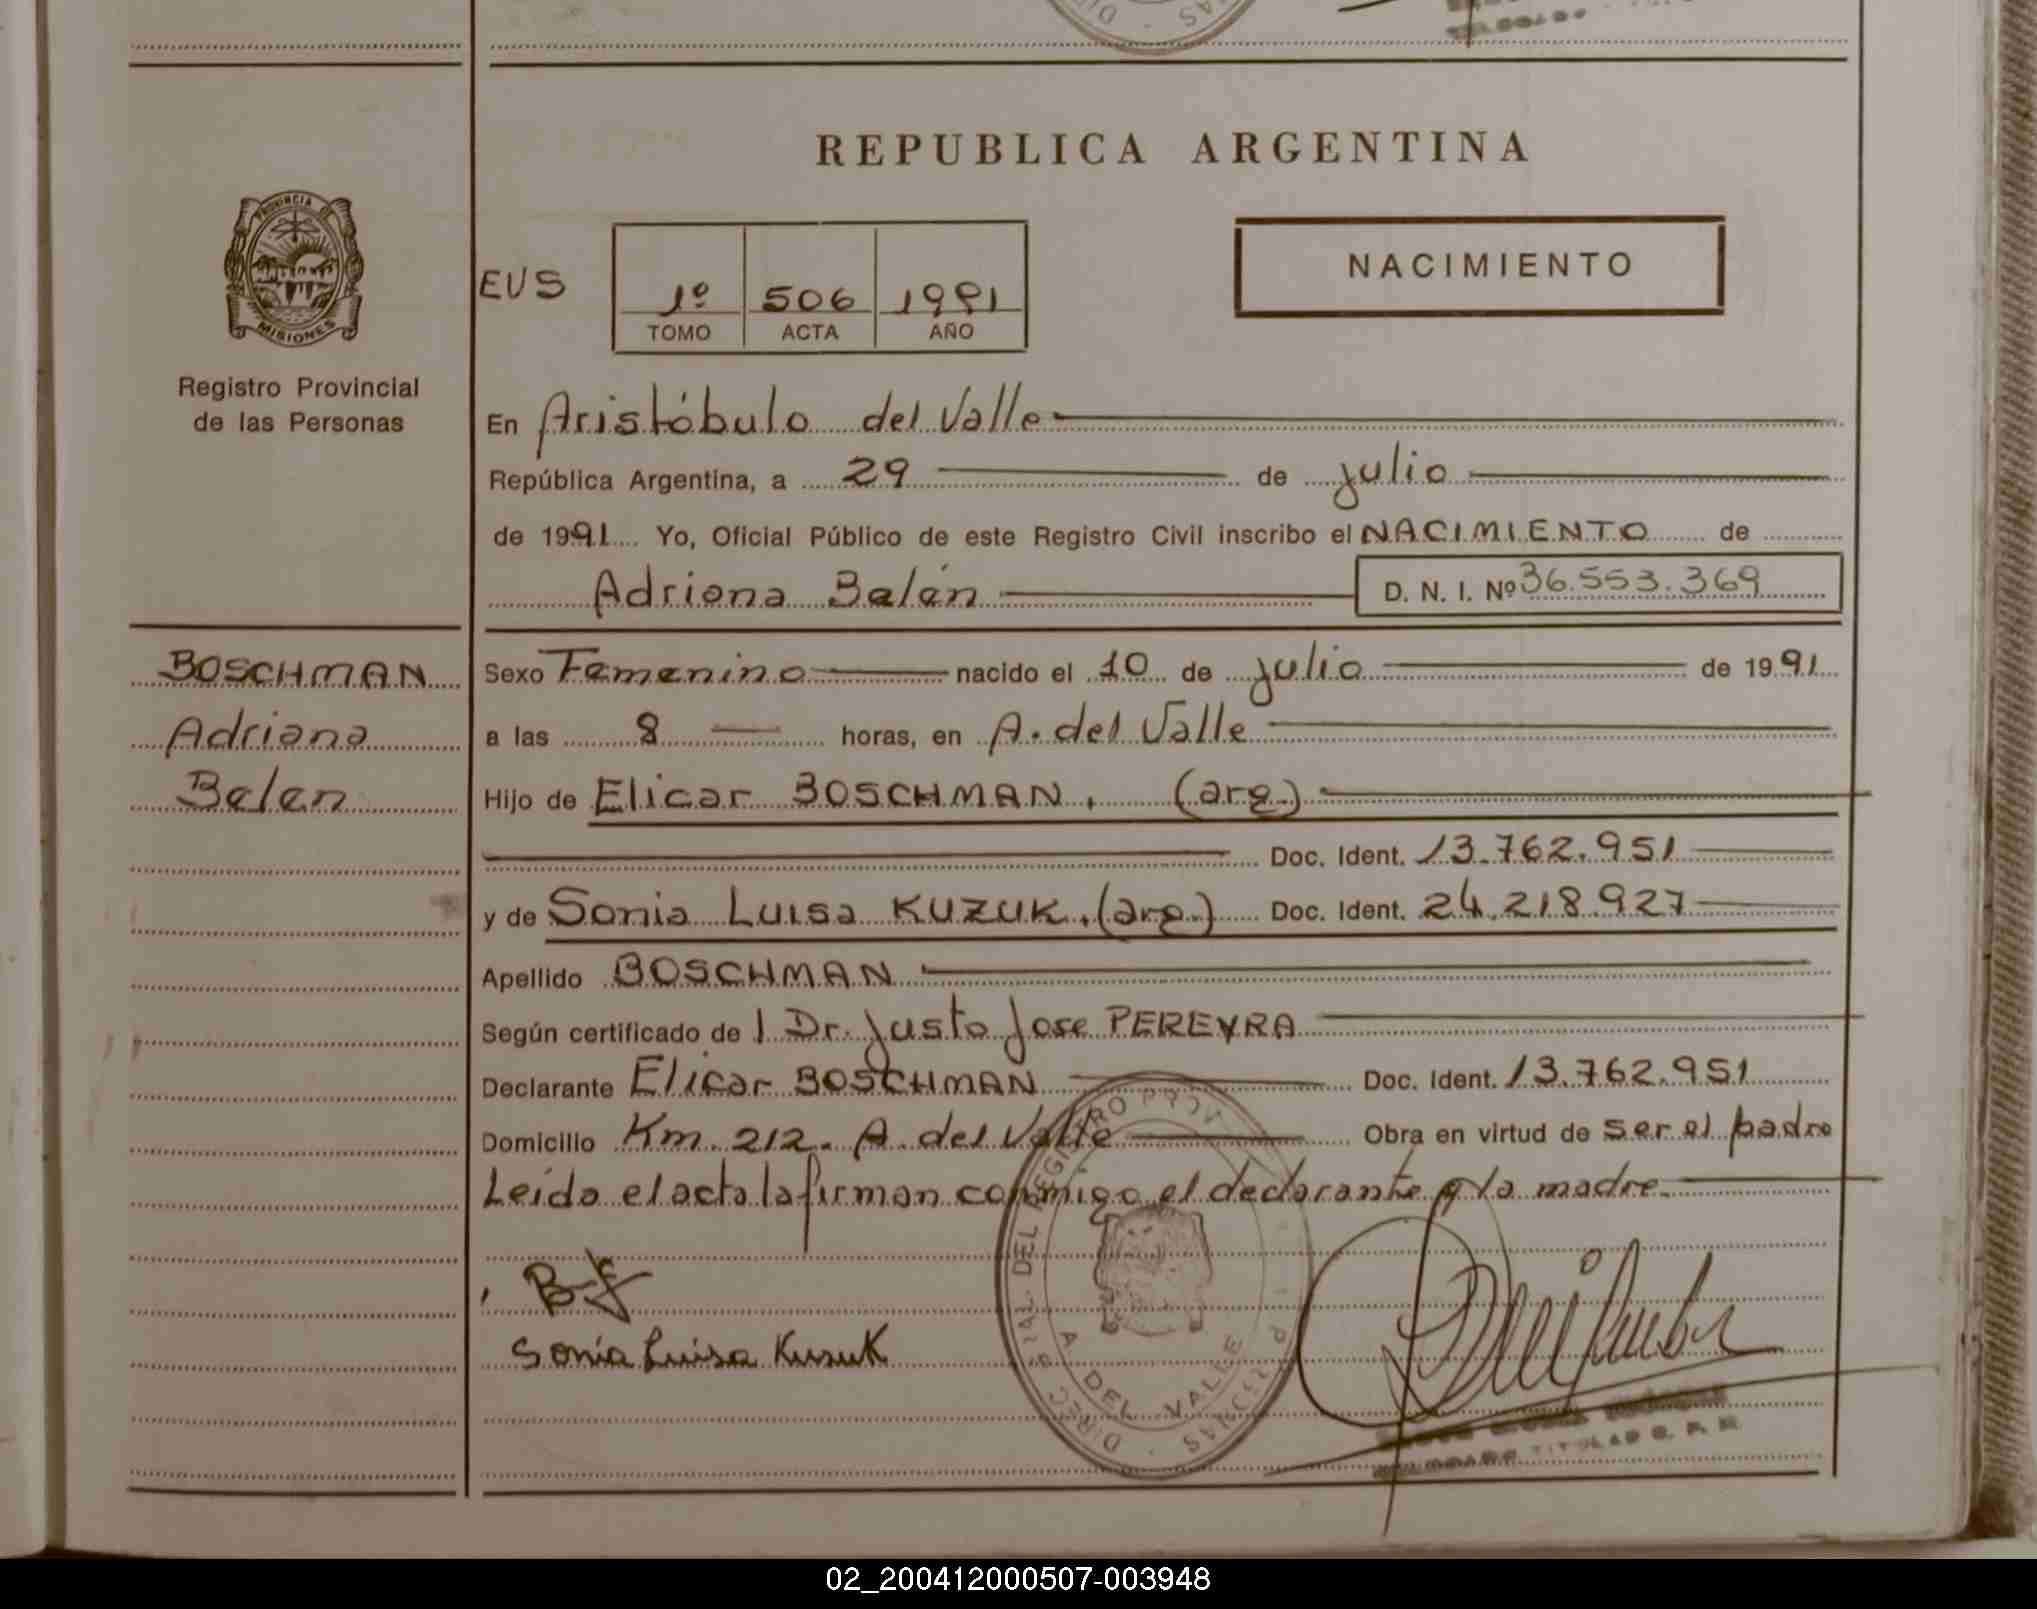 REPUBLICA ARGENTINA
PROVINCIA DE
MISIONES
Registro Provincial
de las Personas
EUS
1º 506 1991
TOMO ACTA AÑO
NACIMIENTO
En Aristóbulo del Valle
República Argentina, a 29 de julio
de 1991 Yo, Oficial Público de este Registro Civil inscribo el NACIMIENTO de
Adriana Belén D. N. I. Nº 36.553.369
BOSCHMAN
Adriana
Belen
Sexo Femenino nacido el 10 de julio de 1991
a las 8 horas, en A. del Valle
Hijo de Elicar BOSCHMAN. (arg.)
Doc. Ident. 13.762.951
y de Sonia Luisa KUZUK. (arg.) Doc. Ident. 24.218.927
Apellido BOSCHMAN
Según certificado de l Dr. Justo Jose PEREYRA
Declarante Elicar BOSCHMAN Doc. Ident. 13.762.951
Domicilio Km. 212. A. del Valle Obra en virtud de ser el padre
Leída el acta la firman conmigo el declarante y la madre.
Sonia Luisa Kuzuk
DIREC. GRAL. DEL REGISTRO PROV.
A DEL VALLE
TITULAR R. P. P.
02_200412000507-003948